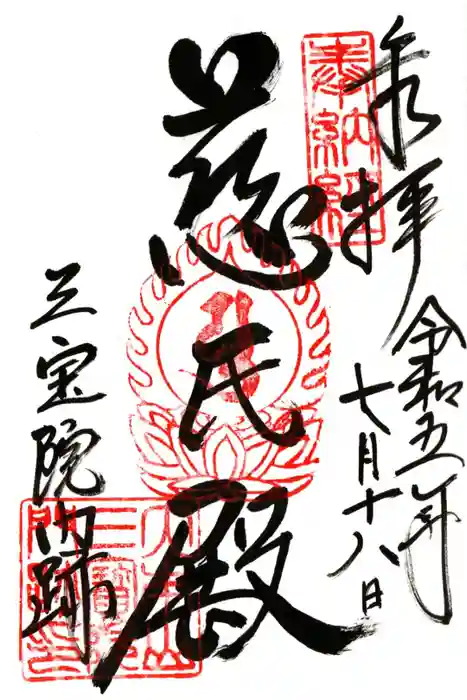 奉拝
令和五年
七月十八日
奉納経
慈氏殿
三宝院
門跡